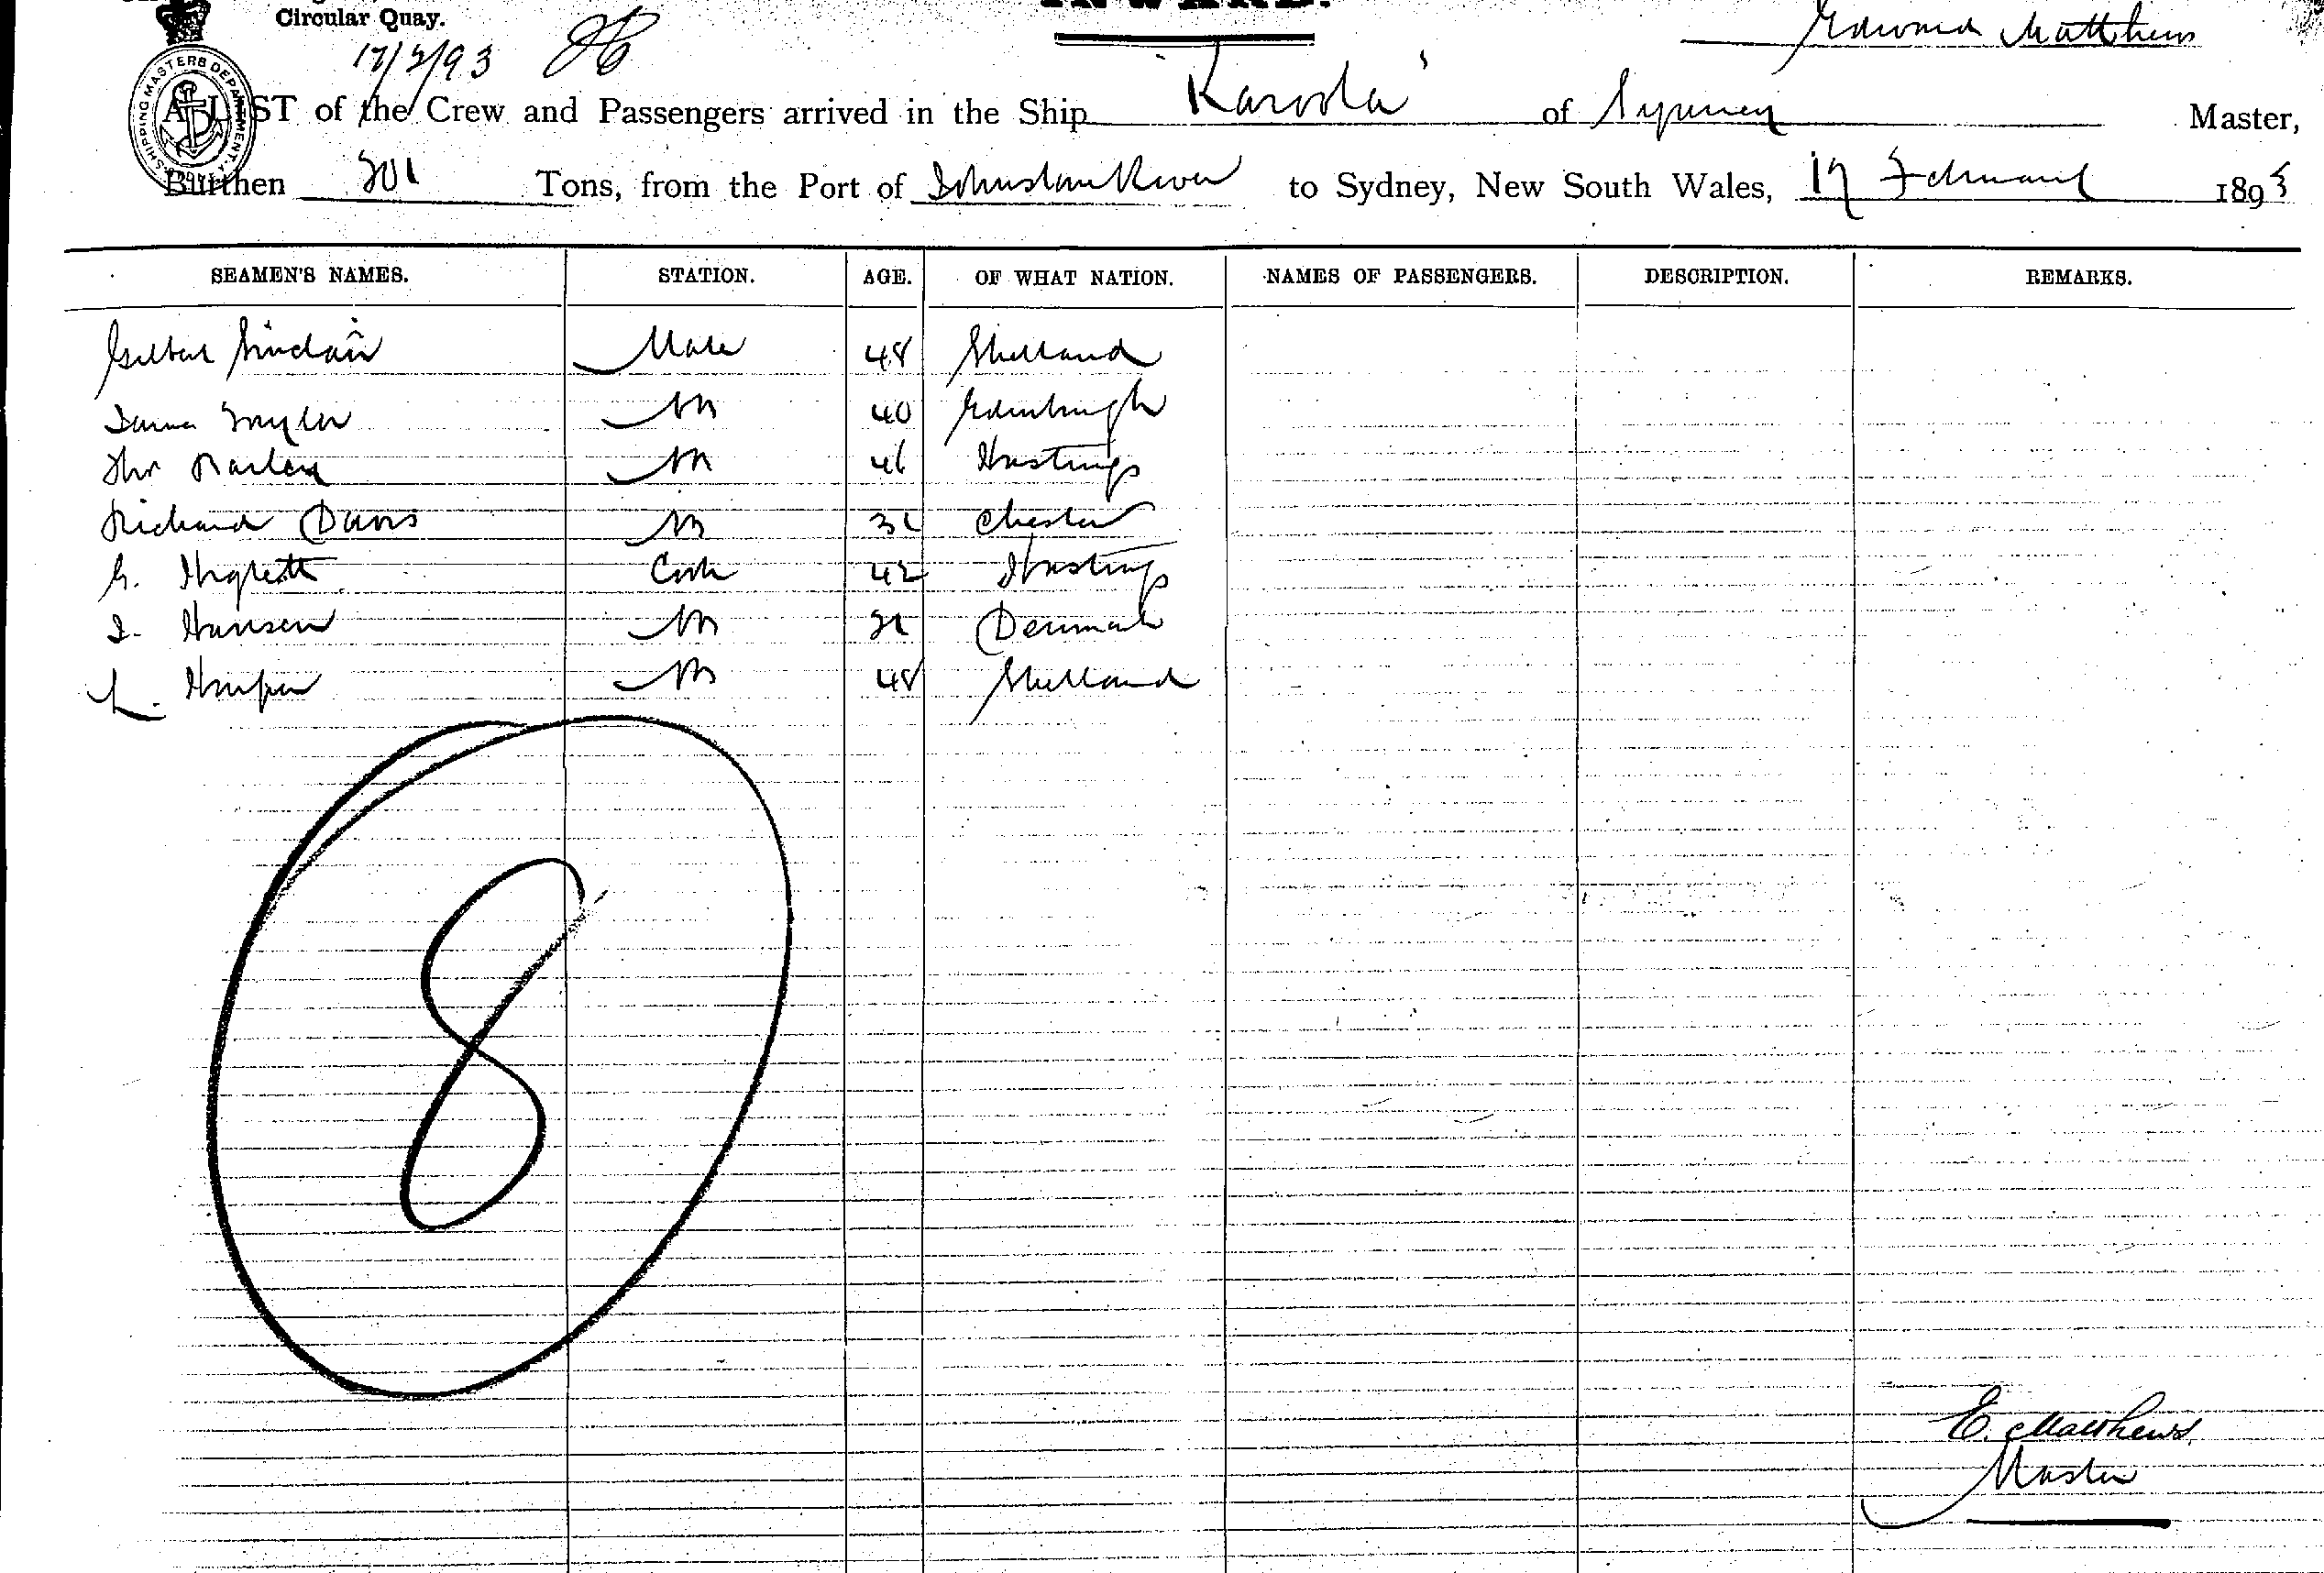 Circular Quay.
INWARD.
17/2/93
Edward Matthews
SHIPPING MASTERS DEPARTMENT
A LIST of the Crew and Passengers arrived in the Ship of Sydney Master,
Burthen 201 Tons, from the Port of Johnstone River to Sydney, New South Wales, 17 February 1893
SEAMEN'S NAMES. STATION. AGE. OF WHAT NATION. NAMES OF PASSENGERS. DESCRIPTION. REMARKS.
Gilbert Sinclair Mate 48 Shetland
James Taylor 40 Edinburgh
Thos 46 Hastings
Richard Davis Chester
G. Cook 42 Hastings
J. Hansen Denmark
L. Harper 48 Shetland
8
E. Matthews
Master